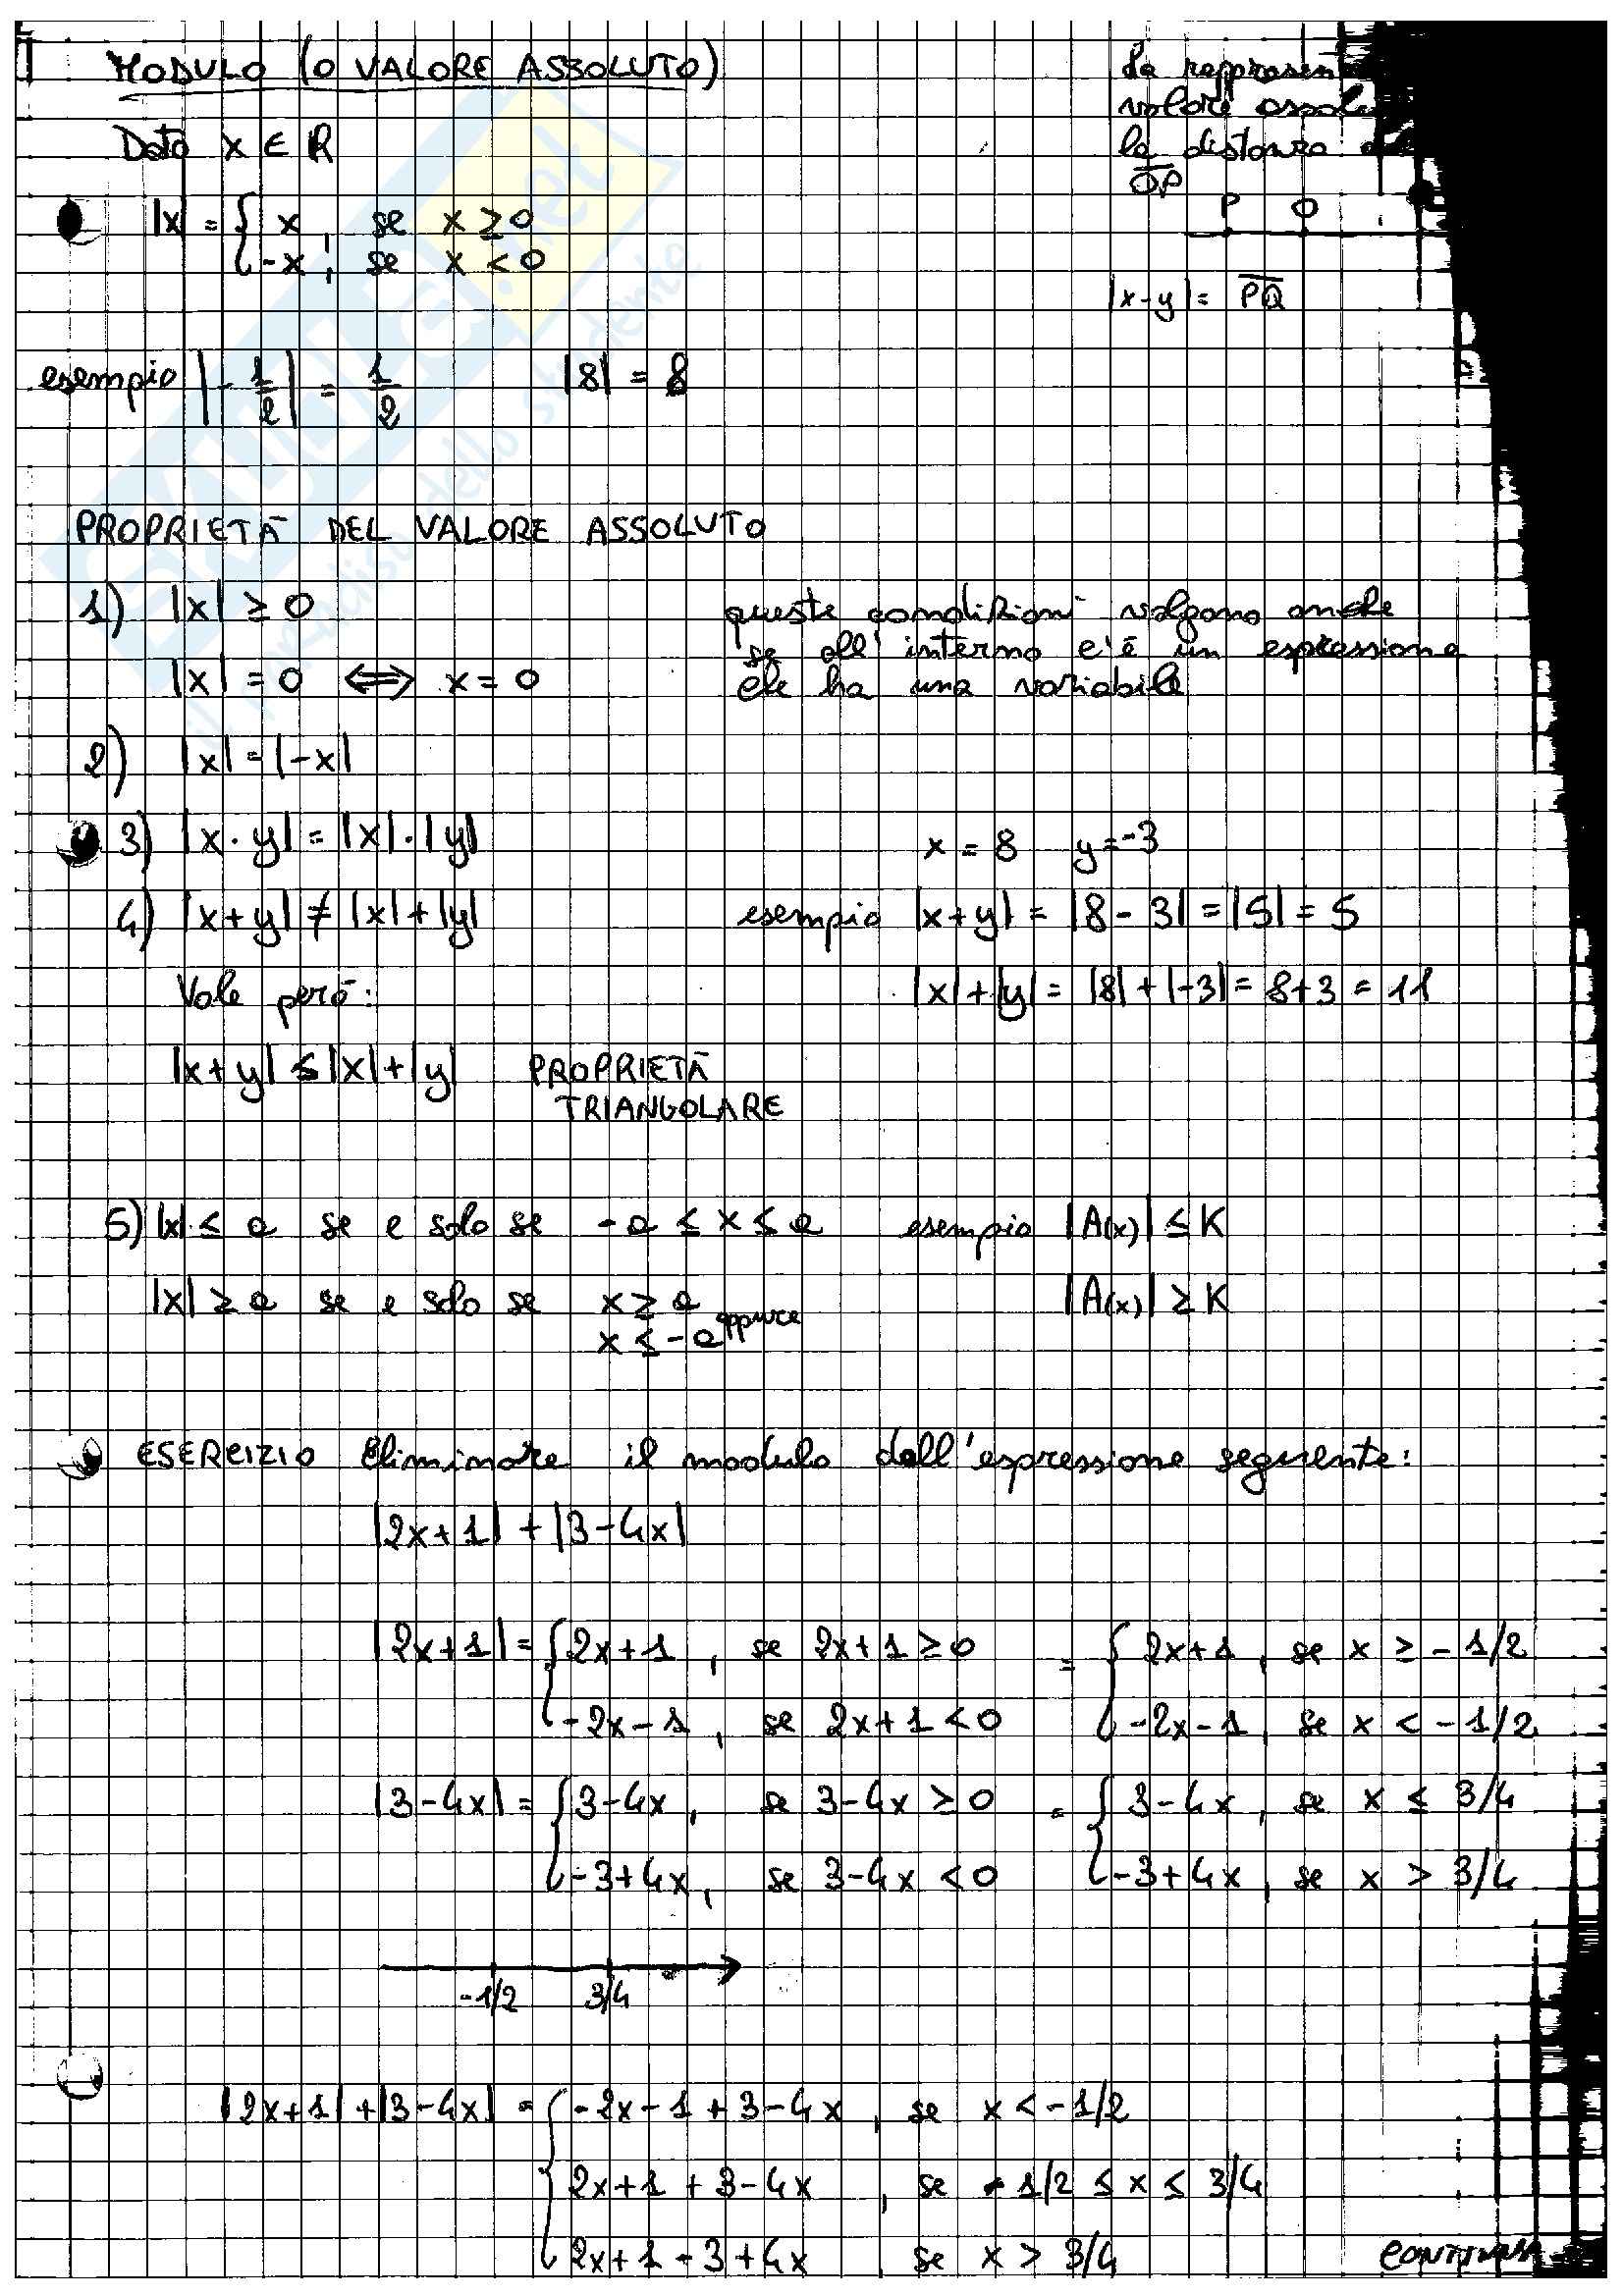 MODULO (O VALORE ASSOLUTO)
Dato x ∈ R
|x| = { x , se x ≥ 0
-x , se x < 0
La
valore
la distanza
OP
P O
|x-y| = PQ
esempio |-1/2| = 1/2 |8| = 8
PROPRIETÀ DEL VALORE ASSOLUTO
1) |x| ≥ 0
|x| = 0 ⟺ x = 0
queste condizioni valgono anche
se all'interno c'è un espressione
che ha una variabile
2) |x| = |-x|
3) |x · y| = |x| · |y|
x = 8 y = -3
4) |x+y| ≠ |x|+|y|
esempio |x+y| = |8-3| = |5| = 5
Vale però:
|x|+|y| = |8|+|-3| = 8+3 = 11
|x+y| ≤ |x|+|y| PROPRIETÀ
TRIANGOLARE
5) |x| ≤ a se e solo se -a ≤ x ≤ a esempio |A(x)| ≤ K
|x| ≥ a se e solo se x ≥ a oppure |A(x)| ≥ K
x ≤ -a
ESERCIZIO Eliminare il modulo dall'espressione seguente:
|2x+1| + |3-4x|
|2x+1| = { 2x+1 , se 2x+1 ≥ 0 = { 2x+1 , se x ≥ -1/2
-2x-1 , se 2x+1 < 0 -2x-1 , se x < -1/2
|3-4x| = { 3-4x , se 3-4x ≥ 0 = { 3-4x , se x ≤ 3/4
-3+4x , se 3-4x < 0 -3+4x , se x > 3/4
-1/2 3/4
|2x+1| + |3-4x| = { -2x-1+3-4x , se x < -1/2
2x+1+3-4x , se -1/2 ≤ x ≤ 3/4
2x+1-3+4x se x > 3/4
CONTINUA
SKUOLA.net
il paradiso dello studente